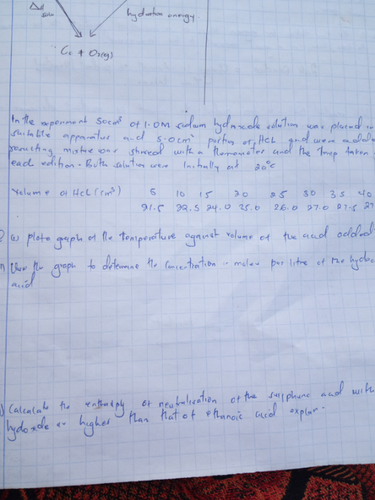 hydration energy
In the experiment 50cm³ of 1.0M sodium hydroxide solution was placed in
suitable apparatus and 5.0cm³ portion of HCl and were added
mixture was stirred with a thermometer and the temp taken
each addition. Both solution were initially at 20°C
Volume of HCl (cm³) 5 10 15 20 25 30 35 40
21.5 22.5 24.0 25.0 26.0 27.0 27.5
plote graph of the temperature against volume of the acid added
Use the graph to determine the concentration moles per litre of the
acid
Calculate the enthalpy of neutralisation of the sulphuric acid with
hydroxide is higher than that of ethanoic acid explain